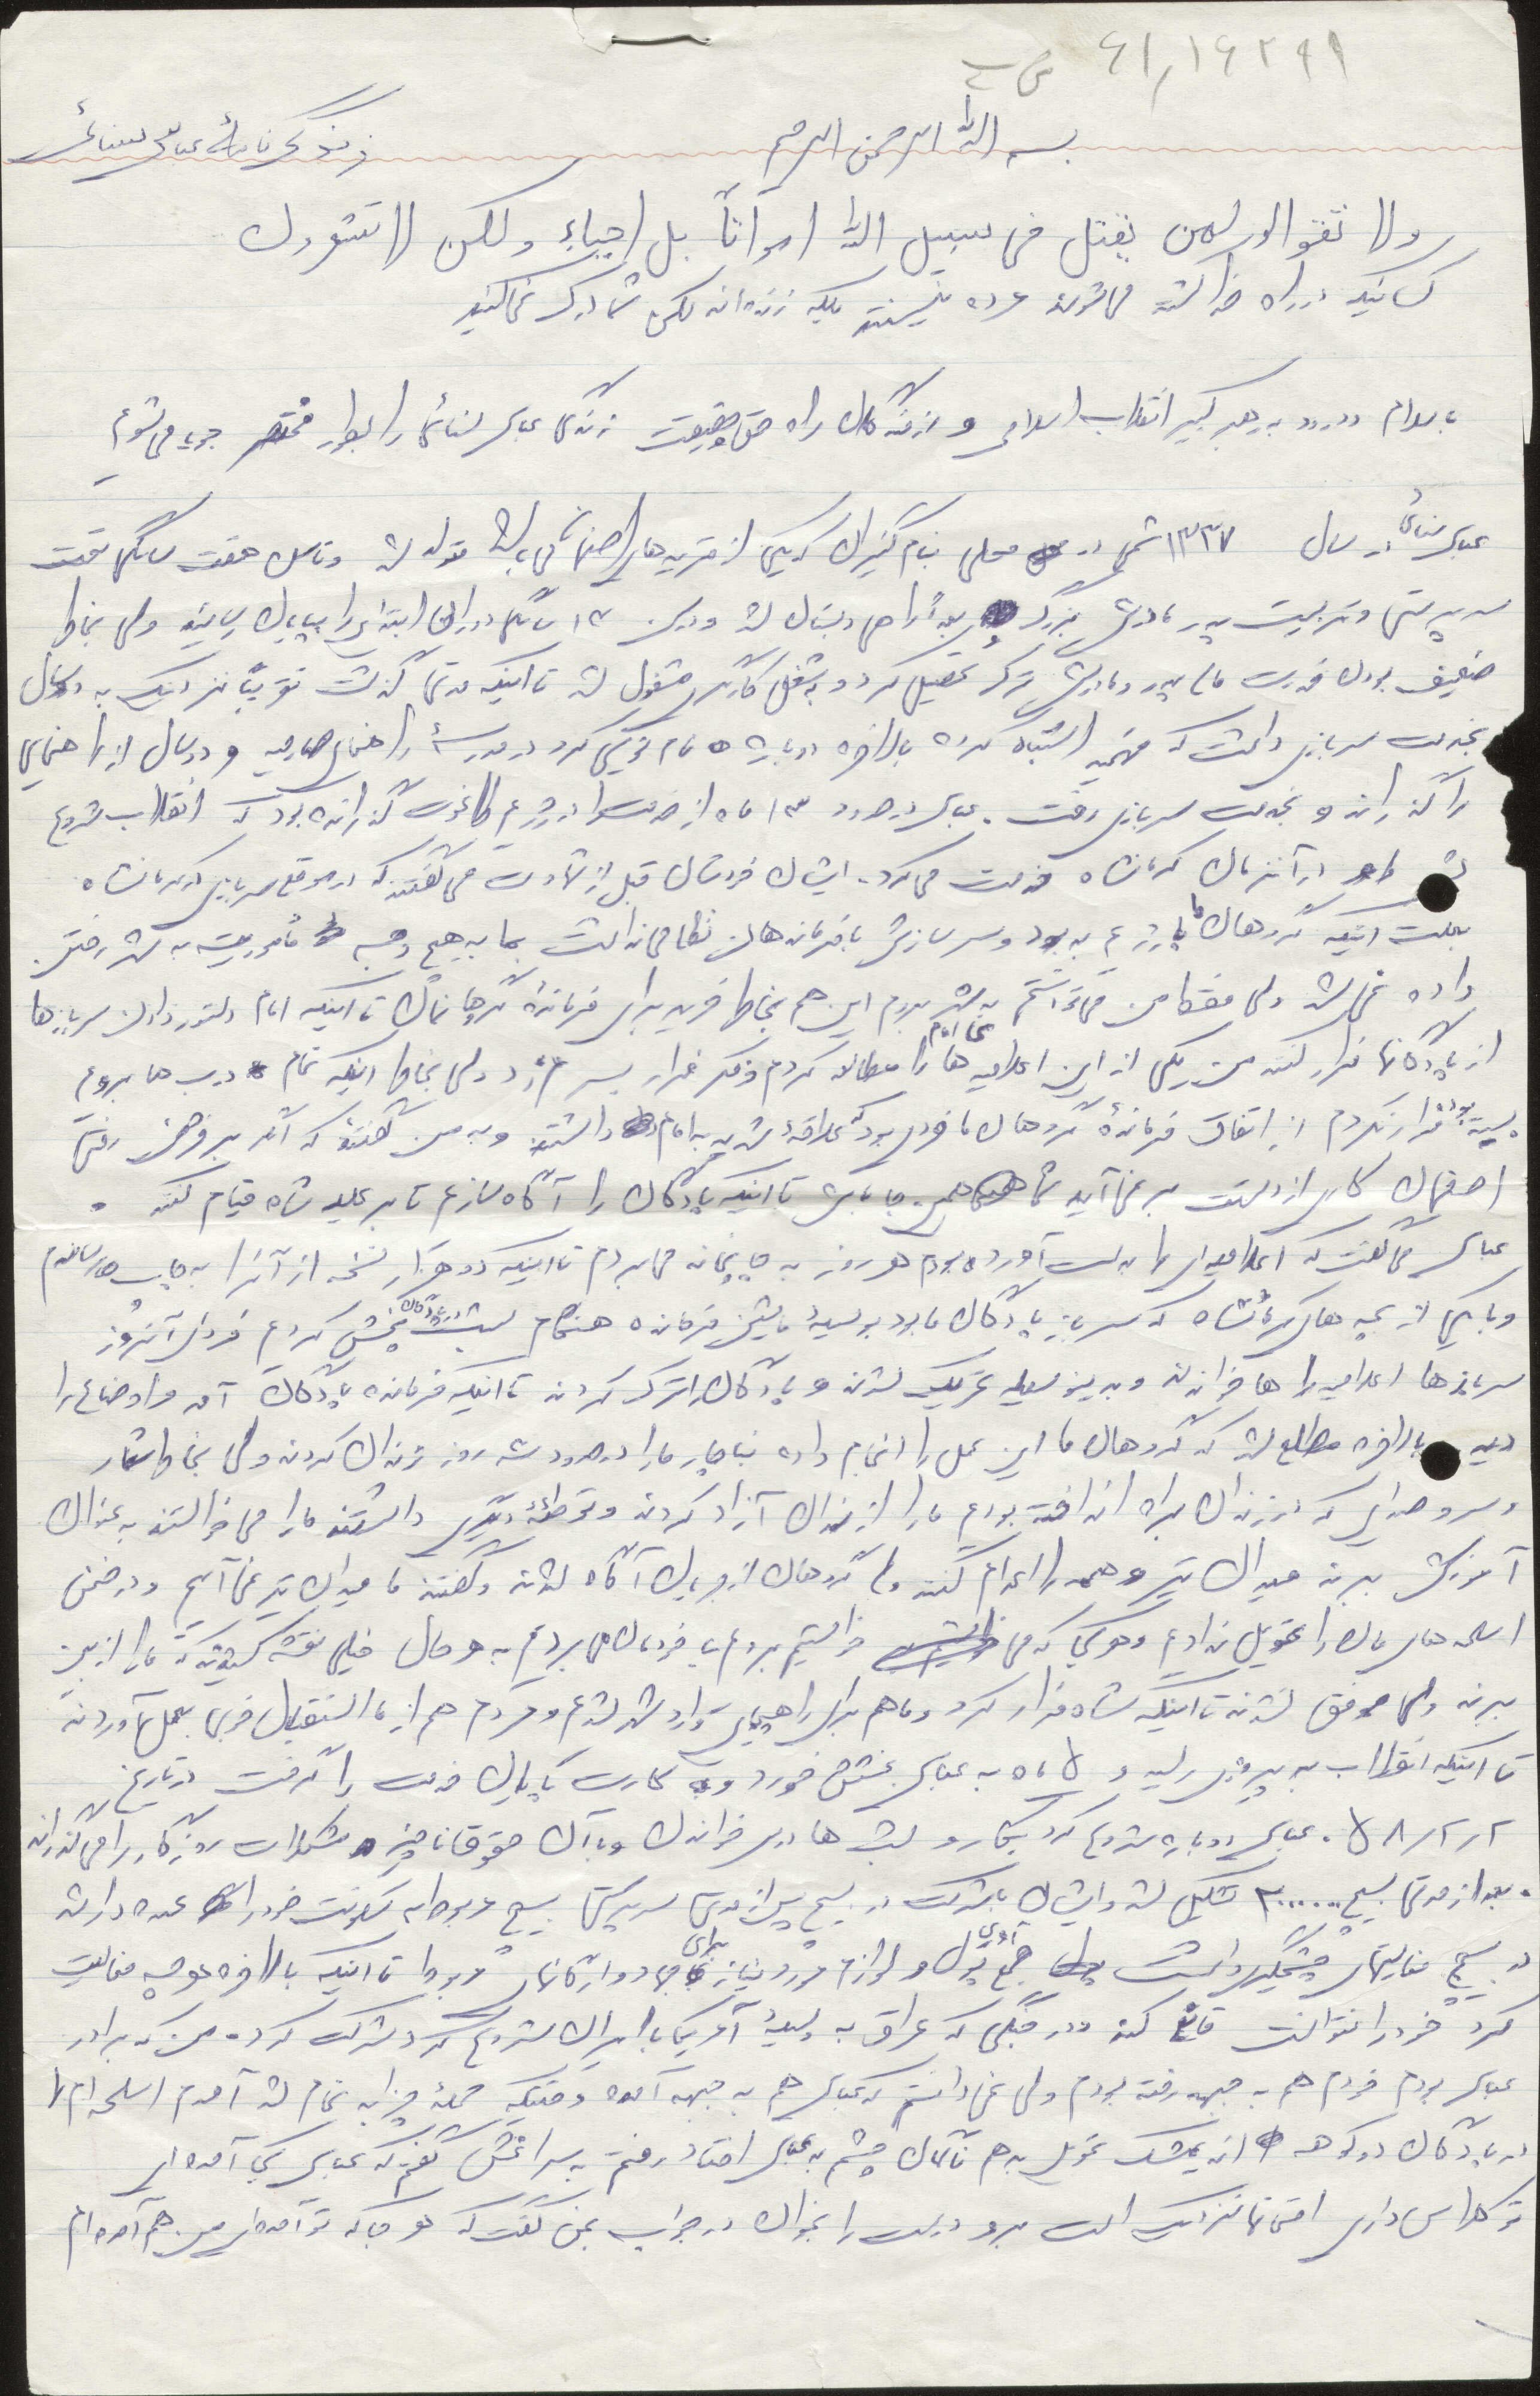 ۶۱٫۱۶۲۹۹
بسم الله الرحمن الرحیم
زندگی نامهٔ عباس سنائی
ولا تقولوا لمن یقتل فی سبیل الله امواتاً بل احیاء ولکن لا تشعرون
کسانیکه در راه خدا کشته می شوند مرده نیستند بلکه زنده اند لکن شما درک نمی کنید
با سلام و درود به رهبر کبیر انقلاب اسلامی و رزمندگان راه حق و حقیقت زندگی عباس سنائی را بطور مختصر جویا می شویم
عباس سنائی در سال ۱۳۳۷ شمسی در محلی بنام گنیران که یکی از قریه های اصفهان می باشد متولد شد و تا سن هفت سالگی تحت
سرپرستی و تربیت پدر و مادرش بزرگ بعداً راهی دبستان شد و در سن ۱۳ سالگی دوران ابتدائی را بپایان رسانید ولی بخاطر
ضعیف بودن قدرت مالی پدر و مادرش ترک تحصیل کرد و به شغل کارگری مشغول شد تا اینکه مدتی گذشت تقریباً نزدیک به دو سال
بخدمت سربازی داشت که فهمید اشتباه کرده بالاخره دوباره نام نویسی کرد در مدرسهٔ راهنمائی و دو سال از راهنمایی
را گذراند و بخدمت سربازی رفت. عباس در حدود ۱۳ ماه از خدمت را در رژیم طاغوت گذرانده بود که انقلاب شروع
شد در آنزمان کرمانشاه خدمت می کرد. ایشان خودشان قبل از شهادت می گفتند که در موقع سربازی در کرمانشاه
بعلت اینکه گروهان ما با رژیم بد بود و سر سازش با فرمانده هان نظامی نداشت بما به هیچ وجه مأموریت به شهر رفتن
داده نمی شد ولی فقط من می توانستم به شهر بروم این هم بخاطر خرید برای فرماندهٔ گروهانمان تا اینکه امام دستور دادن سربازها
از پادگانها فرار کنند من یکی از این اعلامیه های امام را مطالعه کردم و فکر فرار بسرم زد ولی بخاطر اینکه تمام درب ها برویم
بسته بود فرار نکردم از اتفاق فرماندهٔ گروهان ما فردی بود که علاقهٔ شدید به امام داشتند و به من گفتند که اگر برفرض رفتی
اصفهان کاری از دستت بر نمی آید شما همین جا باش تا اینکه پادگان را آگاه سازیم تا بر علیه شاه قیام کنند.
عباس می گفت که اعلامیه ای را بدست آورده بودم هر روز به چاپخانه می بردم تا اینکه دو هزار نسخه از آنرا به چاپ رساندم
و با یکی از بچه های کرمانشاه که سرباز پادگان ما بود بوسیلهٔ ماشین فرمانده هنگام شب در پادگان پخش کردیم فردای آنروز
سربازها اعلامیه را ها خواندند و بدینوسیله تحریک شدند و پادگان را ترک کردند تا اینکه فرمانده پادگان آمد و اوضاع را
دید بالاخره مطلع شد که گروهان ما این عمل را انجام داده بناچار ما را در حدود شش روز زندان کردند ولی بخاطر شعار
و سر و صدای که در زندان براه انداخته بودیم ما را از زندان آزاد کردند و توطئهٔ دیگری داشتند ما را می خواستند به عنوان
آموزش ببرند میدان تیر و همه را اعدام کنند ولی گروهان از جریان آگاه شدند و گفتند ما میدان تیر نمی آئیم و در ضمن
اسلحه هایمان را تحویل ندادیم و هر کجا که می خواستیم برویم با خودمان می بردیم به هر حال خیلی نقشه کشیدند که ما را از بین
ببرند ولی موفق نشدند تا اینکه شاه فرار کرد و ما هم برای راهپیمایی وارد شهر شدیم و مردم هم از ما استقبال خوبی بعمل آوردند
تا اینکه انقلاب به پیروزی رسید و ۵ ماه به عباس بخشش خورد و کارت پایان خدمت را گرفت در تاریخ
۵۸٫۲٫۲. عباس دوباره شروع کرد بکار و شب ها درس خواندن و با آن حقوق ناچیز مشکلات روزگار را می گذراند
. بعد از مدتی بسیج ۲۰۰۰۰۰۰۰ تشکیل شد و ایشان با شرکت در بسیج پس از مدتی سرپرستی بسیج مربوط به سکونت خود را عهده دار شد
در بسیج فعالیتهای چشمگیری داشت جمع آوری پول و لوازم مورد نیاز برای جهاد و ارگانهای مربوط تا اینکه بالاخره هر چه فعالیت
کرد خود را نتوانست قانع کند و در جنگی که عراق به وسیلهٔ آمریکا با ایران شروع کرد شرکت کرد. من که برادر
عباس بودم خودم هم به جبهه رفته بودم ولی نمی دانستم که عباس هم به جبهه آمده وقتیکه حملهٔ چزابه تمام شد آمدم اسلحه ام را
در پادگان دو کوهه اندیمشک تحویل بدهم ناگهان چشمم به عباس افتاد رفتم به سراغش گفتم که عباس کجا آمده ای
تو کلاس داری امتحانها نزدیک است برو درست را بخوان در جواب بمن گفت که هر جا که تو آمده ای من هم آمده ام